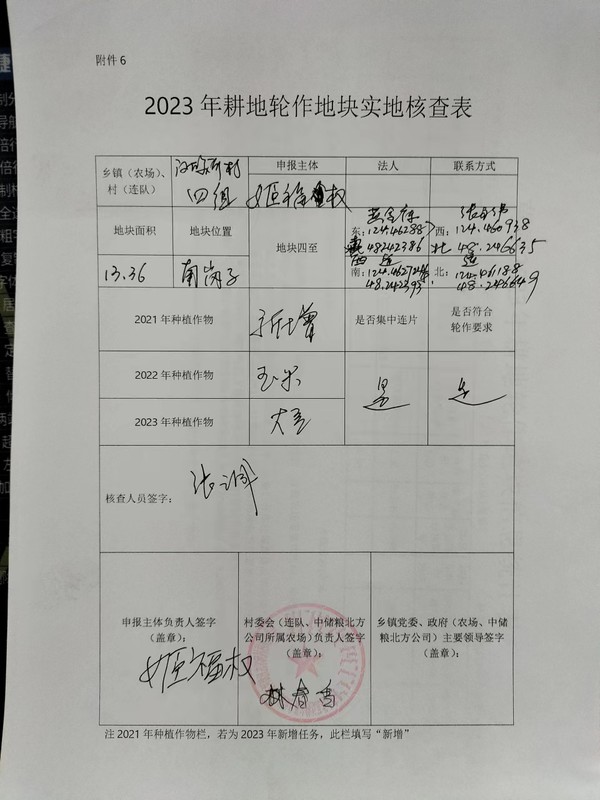 附件 6
2023 年耕地轮作地块实地核查表
乡镇（农场）、
村（连队）
四组
申报主体
姬福权
法人
联系方式
地块面积
地块位置
地块四至
东：124.46288
48242386
西：124.460938
北 48.246635
南：
48.242393
北：124.461188
48.2466449
13.36
南岗子
2021 年种植作物
新增
是否集中连片
是否符合
轮作要求
2022 年种植作物
玉米
是
是
2023 年种植作物
大豆
核查人员签字：
张
申报主体负责人签字
（盖章）：
姬福权
村委会（连队、中储粮北方
公司所属农场）负责人签字
（盖章）：
林
乡镇党委、政府（农场、中储
粮北方公司）主要领导签字
（盖章）：
注 2021 年种植作物栏，若为 2023 年新增任务，此栏填写“新增”